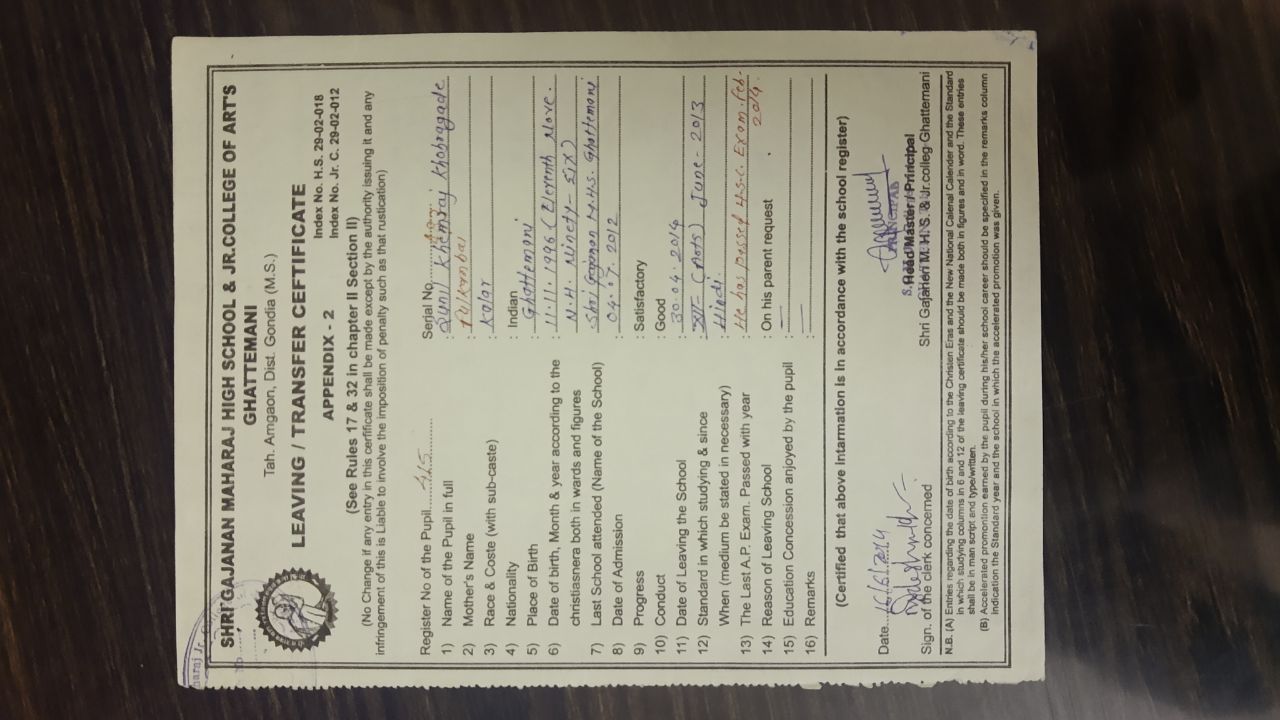 SHRI GAJANAN MAHARAJ HIGH SCHOOL & JR.COLLEGE OF ART'S
GHATTEMANI
Tah. Amgaon, Dist. Gondia (M.S.)
LEAVING / TRANSFER CEFTIFICATE
Index No. H.S. 29-02-018
APPENDIX - 2
Index No. Jr. C. 29-02-012
(See Rules 17 & 32 in chapter II Section II)
(No Change if any entry in this certificate shall be made except by the authority issuing it and any
infringement of this is Liable to involve the imposition of penalty such as that rustication)
Register No of the Pupil....415.... Serial No....
1) Name of the Pupil in full : Sunil Khemraj Khobragade
2) Mother's Name :
3) Race & Coste (with sub-caste) :
4) Nationality : Indian
5) Place of Birth : Ghattemani
6) Date of birth, Month & year according to the : 11.11.1996 (Eleventh Nove.
christiasnera both in wards and figures N.H. Ninety-Six)
7) Last School attended (Name of the School) : Shri Gajanan M.H.S. Ghattemani
8) Date of Admission : 04.07.2012
9) Progress : Satisfactory
10) Conduct : Good
11) Date of Leaving the School : 30.04.2014
12) Standard in which studying & since : XII (Arts) June-2013
When (medium be stated in necessary) Hindi
13) The Last A.P. Exam. Passed with year : He has passed H.S.C. Exam. Feb.
2014.
14) Reason of Leaving School : On his parent request
15) Education Concession enjoyed by the pupil : —
16) Remarks : —
(Certified that above Intarmation is in accordance with the school register)
Date...16/6/2014
Sign. of the clerk concerned
Head Master / Principal
Shri Gajanan M. H. S. & Jr.colleg Ghattemani
N.B. (A) Entries regarding the date of birth according to the Christen Eras and the New National Calenal Calender and the Standard
in which studying columns in 6 and 12 of the leaving certificate should be made both in figures and in word. These entries
shall be in man script and type/written.
(B) Accelerated promontion earned by the pupil during his/her school career should be specified in the remarks column
indication the Standard year and the school in which the accelerated promotion was given.